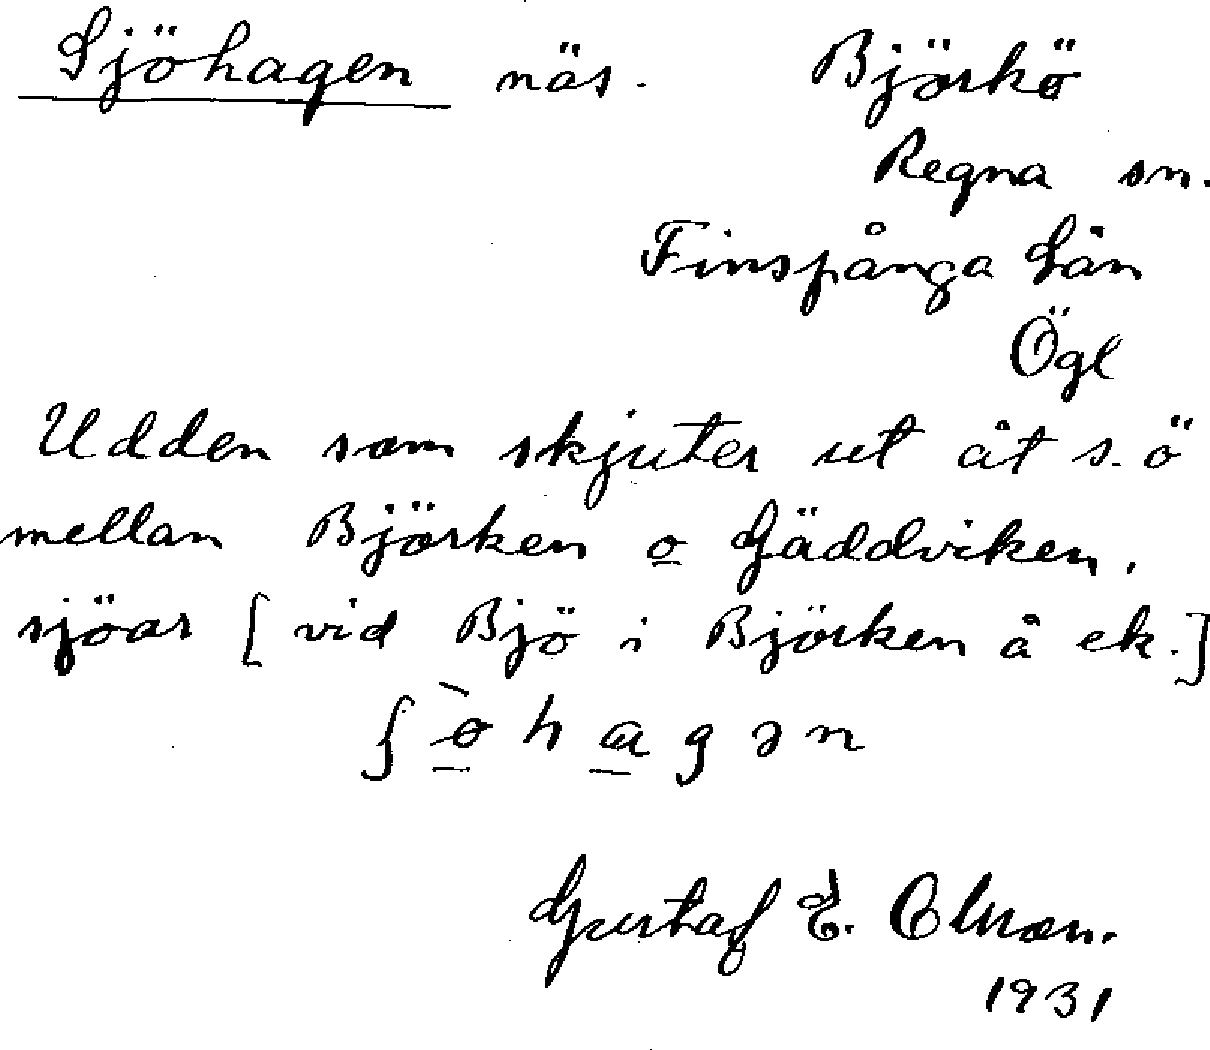 Sjöhagen näs. Björkö
Regna sn.
Finspånga Län
Ögl
Udden som skjuter ut åt s.ö
mellan Björken o Gäddviken,
sjöar [vid Bjö i Björken å ek.]
Gustaf E.
1931